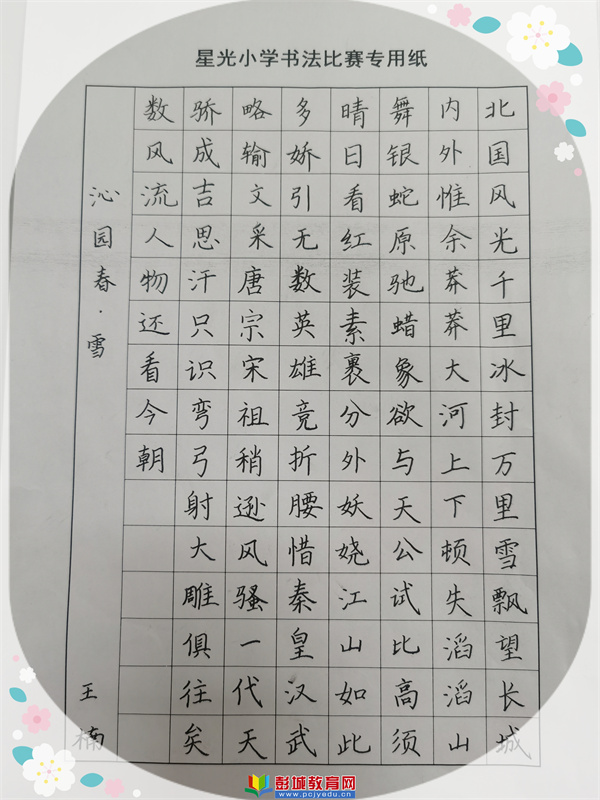 星光小学书法比赛专用纸
北国风光千里冰封万里雪飘望长城
内外惟余莽莽大河上下顿失滔滔山
舞银蛇原驰蜡象欲与天公试比高须
晴日看红装素裹分外妖娆江山如此
多娇引无数英雄竞折腰惜秦皇汉武
略输文采唐宗宋祖稍逊风骚一代天
骄成吉思汗只识弯弓射大雕俱往矣
数风流人物还看今朝
沁园春·雪
王楠
彭城教育网
www.pcjyedu.cn